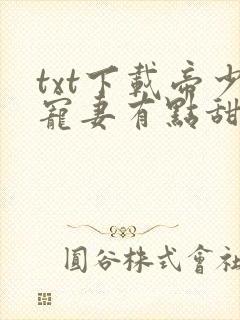 txt下載帝少
寵妻有點甜
圓谷株式會社